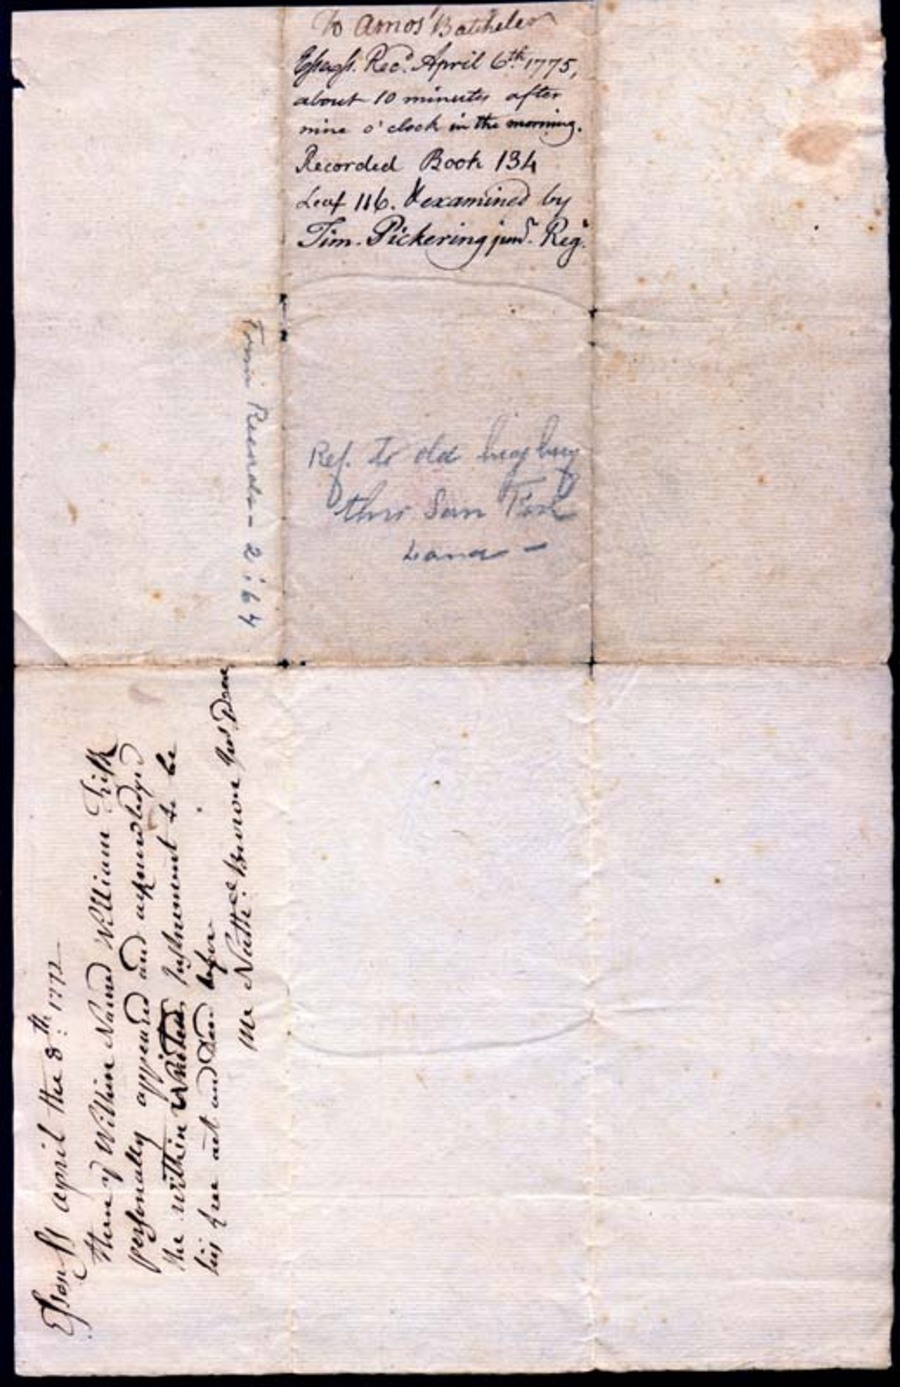 To Amos Batcheler
Essex ss. Recd. April 6th. 1775,
about 10 minutes after
nine o'clock in the morning.
Recorded Book 134
Leaf 116. & examined by
Tim. Pickering junr. Regr.
Town Records - 2:64
Ref. to old
thro Sam Fisk
Land -
Essex ss april the 8th. 1772
then ye Within Named William Fisk
personally appeared and acknowledged
the within Instrument to be
his free act and Deed before
me Nathll Brown Jus Peace